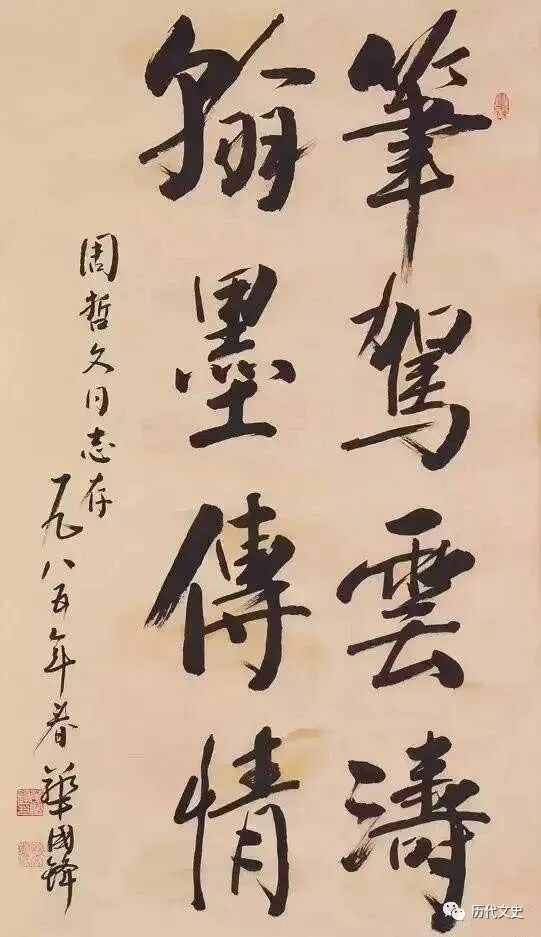 筆駕雲濤
翰墨傳情
周哲文同志存
一九八五年春 華國鋒
历代文史